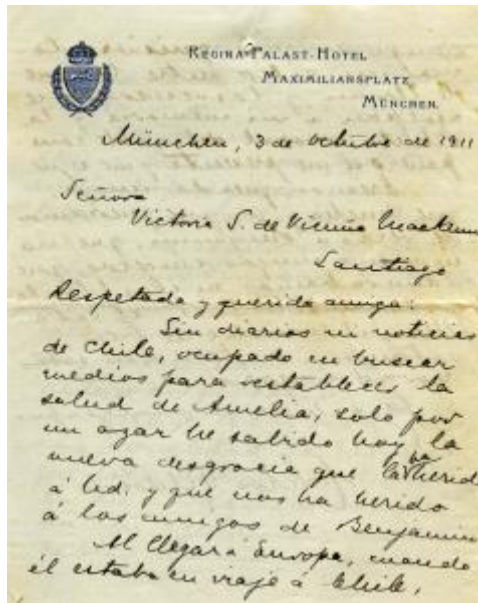 REGINA-PALAST-HOTEL
MAXIMILIANSPLATZ
MÜNCHEN.
München, 3 de octubre de 1911
Señora
Victoria S. de Vicuña Mackenna
Santiago
Respetada y querida amiga:
Sin diarios ni noticias
de Chile, ocupado en buscar
medios para restablecer la
salud de Amelia, solo por
un azar he sabido hoy la
nueva desgracia que la ha herido
á Ud. y que nos ha herido
á los amigos de Benjamin
Al llegar á Europa, cuando
él estaba en viaje á Chile,